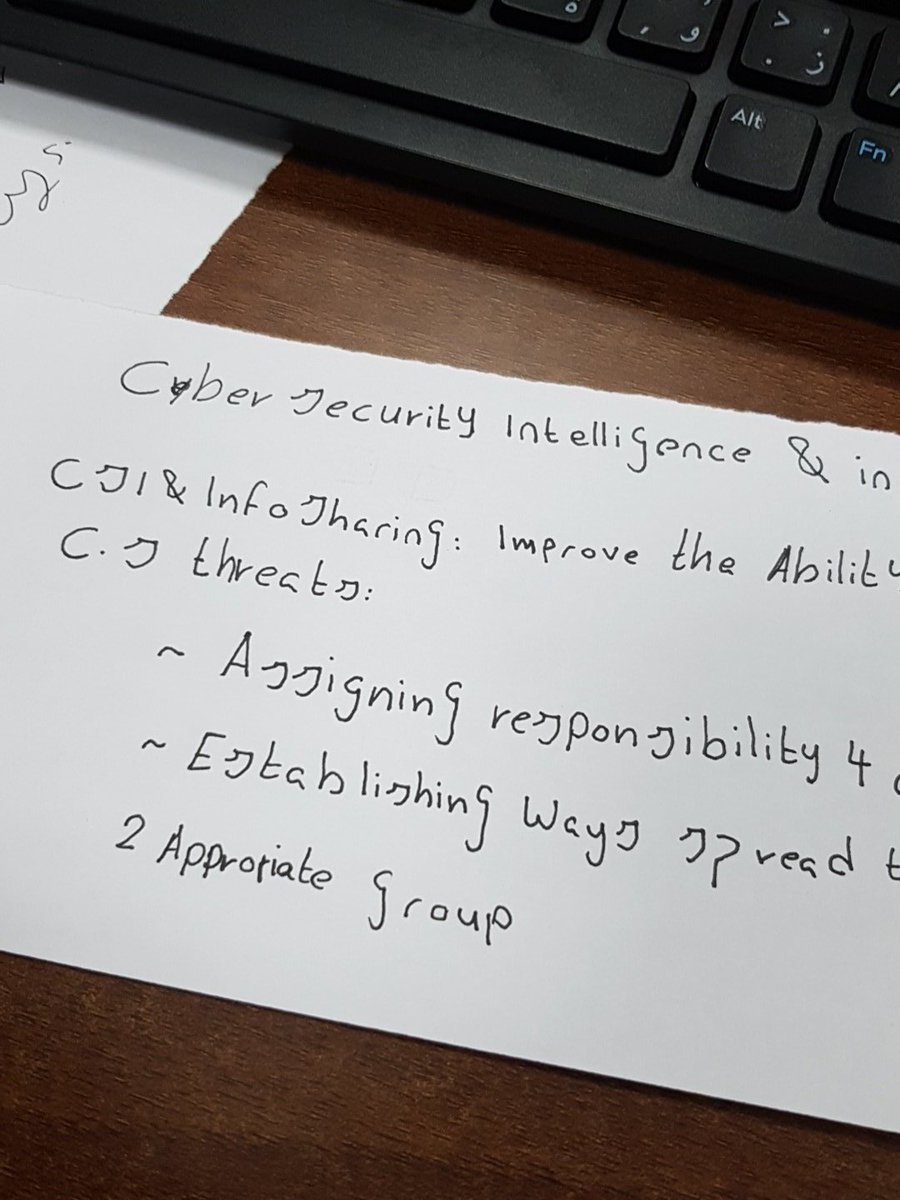 و
> .
. ز
Alt
Fn
Cyber Security Intelligence & in
CSI & Info Sharing: Improve the Ability
C.S threats:
~ Assigning responsibility 4
~ Establishing Ways spread
2 Approriate group